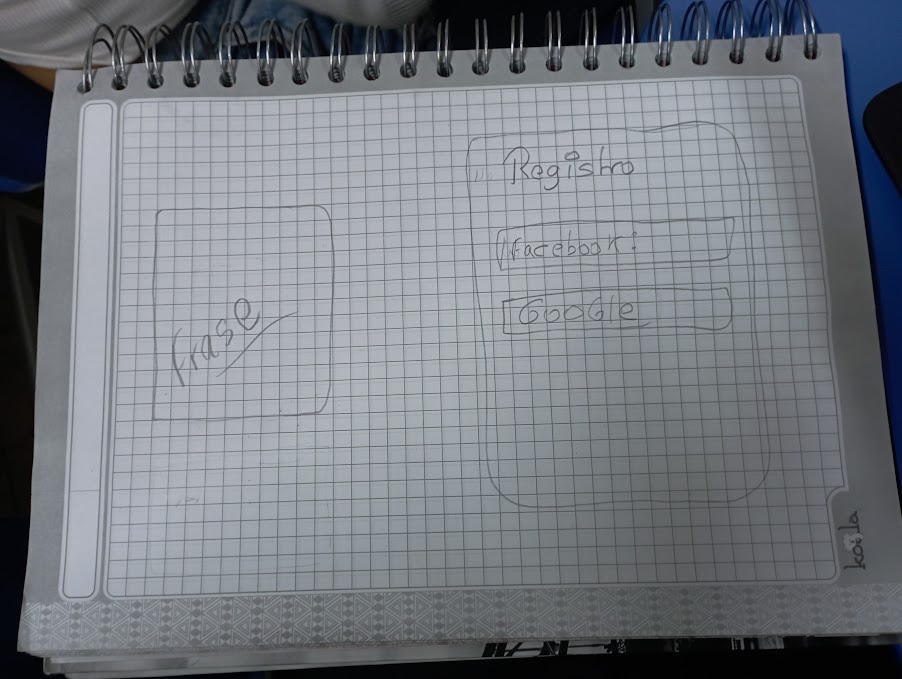 Frase
Registro
Facebook:
GooGle
koila